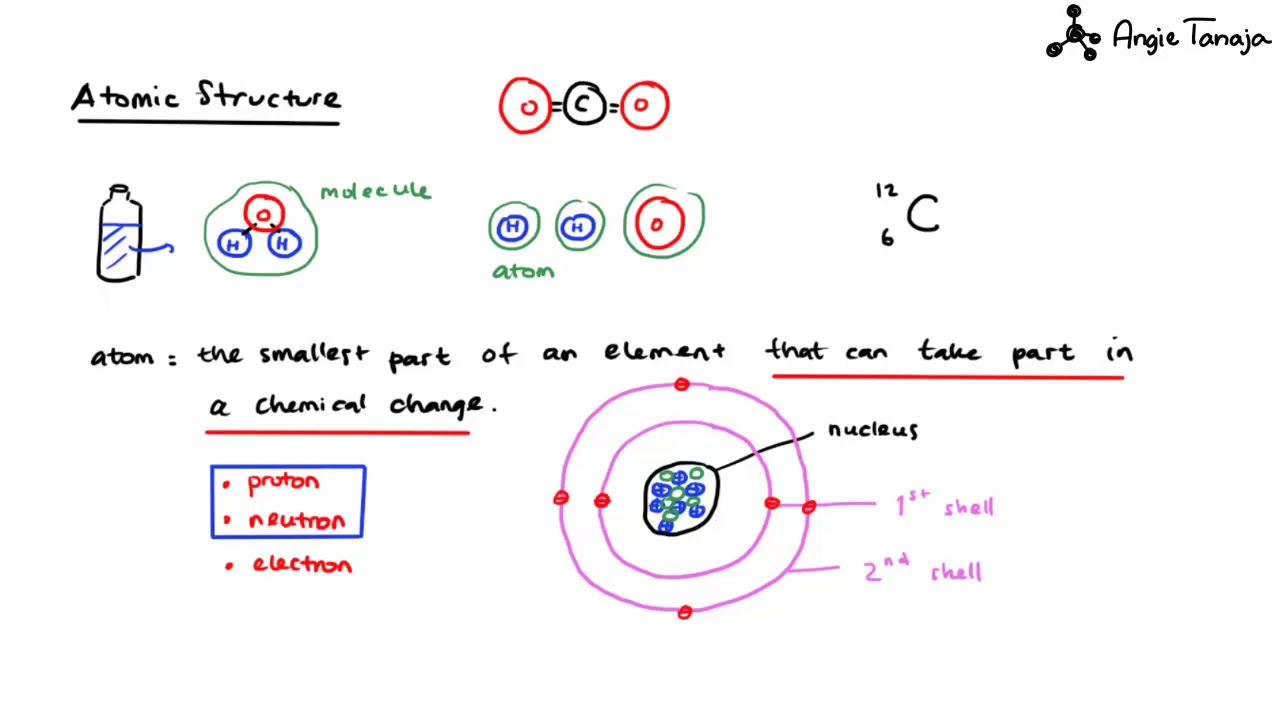 Angie Tanaja
Atomic Structure
O = C = O
molecule
O
H H
H H O
atom
12
6 C
atom : the smallest part of an element that can take part in
a chemical change.
nucleus
• proton
• neutron
• electron
1st shell
2nd shell